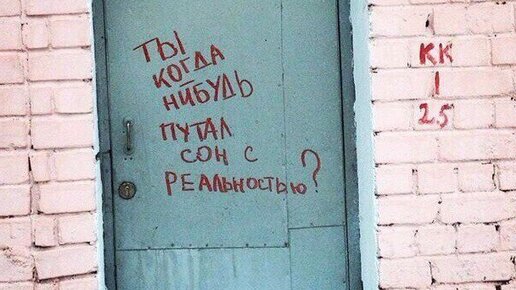 ТЫ
КОГДА-
НИБУДЬ
ПУТАЛ
СОН С
РЕАЛЬНОСТЬЮ?
КК
1
25